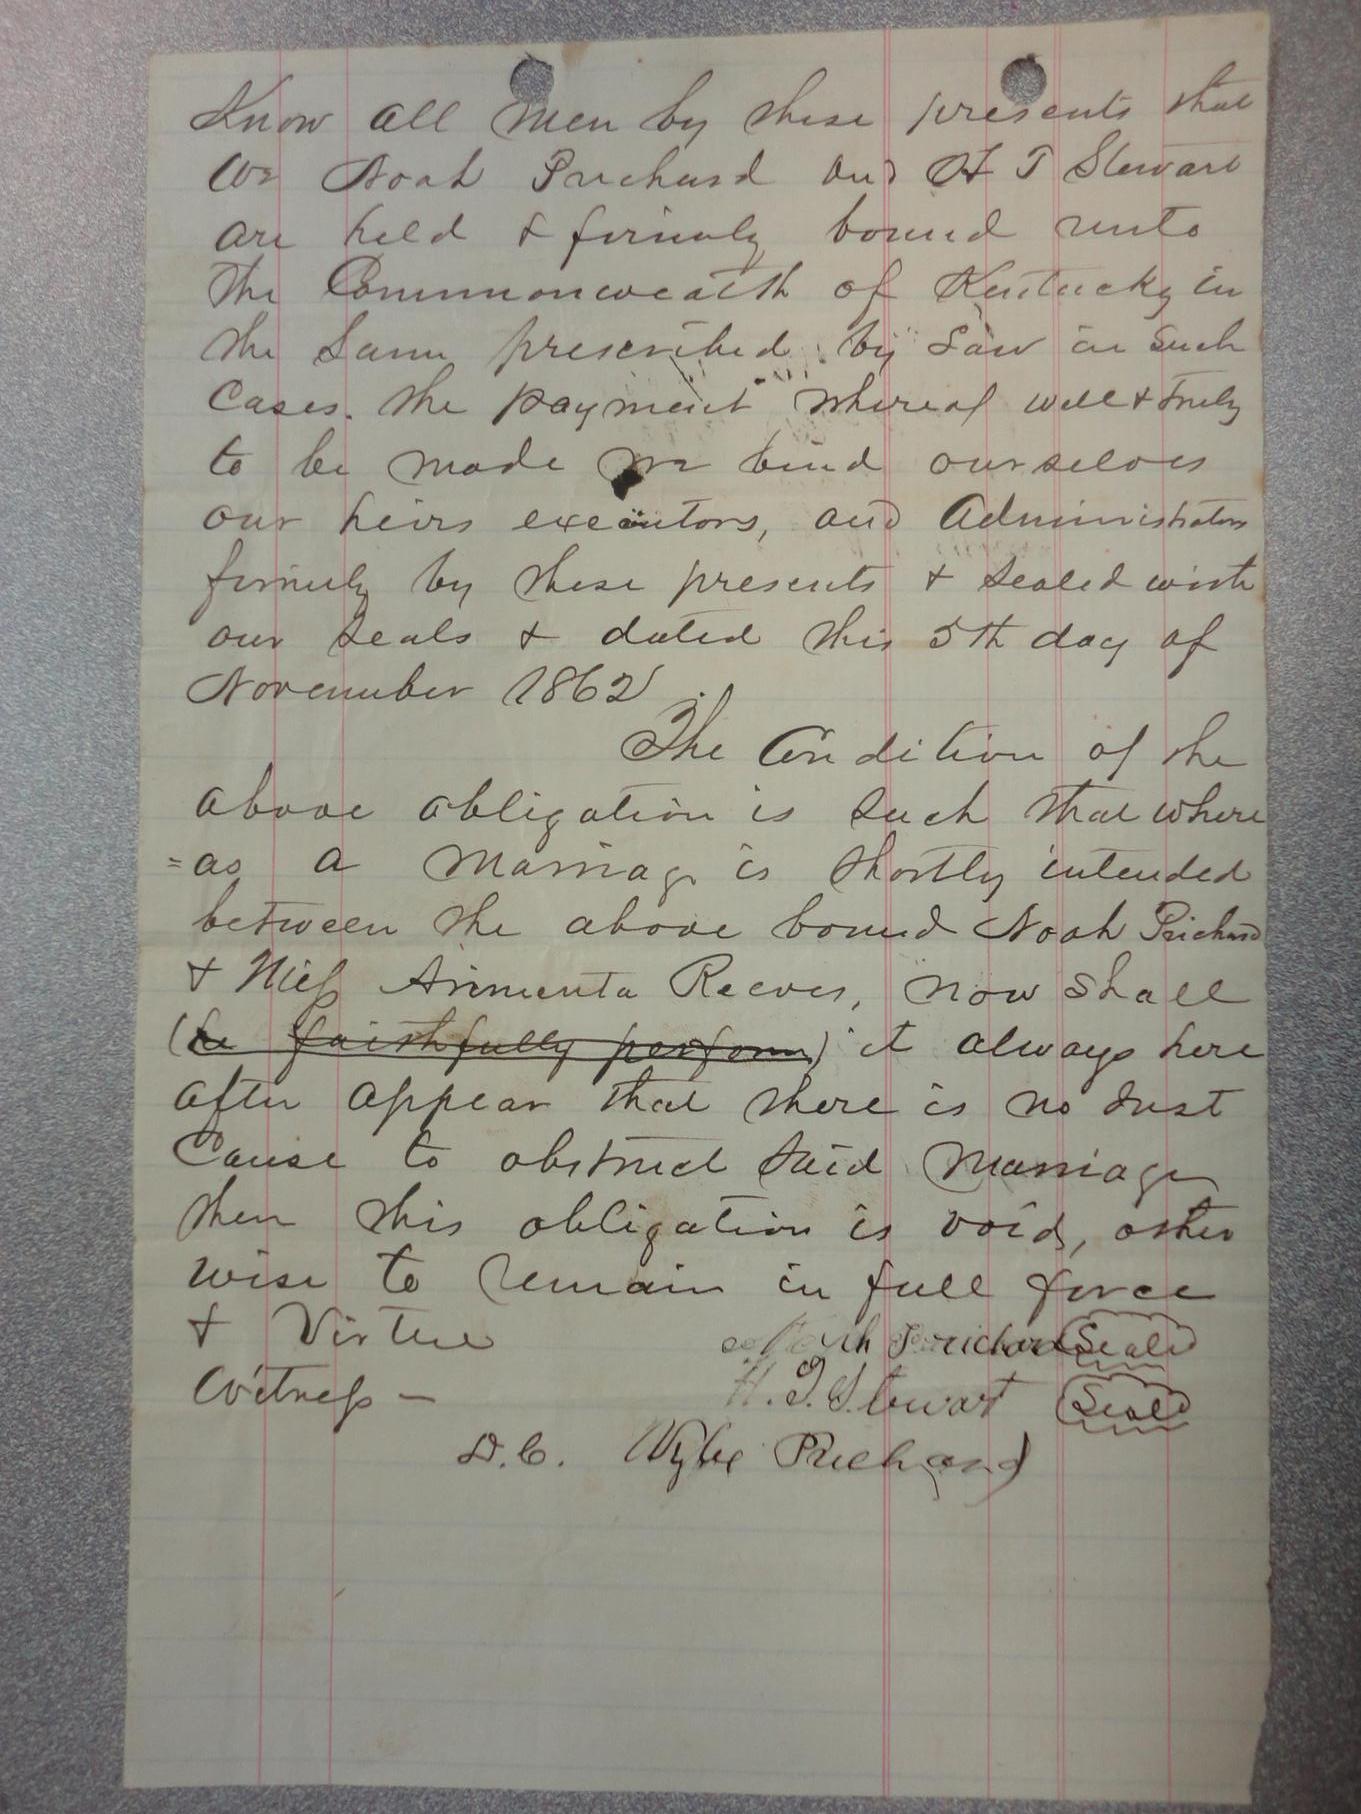 Know all men by these presents that
we Noah Prichard and H T Stewart
are held & firmly bound unto
the Commonwealth of Kentucky in
the Sum prescribed by Law in such
Cases. the payment whereof well & truly
to be made we bind ourselves
our heirs executors, and Administrators
firmly by these presents & sealed with
our seals & dated this 5th day of
November 1862
The Condition of the
above obligation is such that where
=as a Marriage is shortly intended
between the above bound Noah Prichard
& Miss Arimenta Reeves, now shall
(be faithfully perform) it always here
after appear that there is no Just
Cause to obstruct said Marriage
then this obligation is void, other
wise to remain in full force
& Virtue Noah Prichard Seal
Witness — H. T. Stewart Seal
D.C. Wylie Prichard